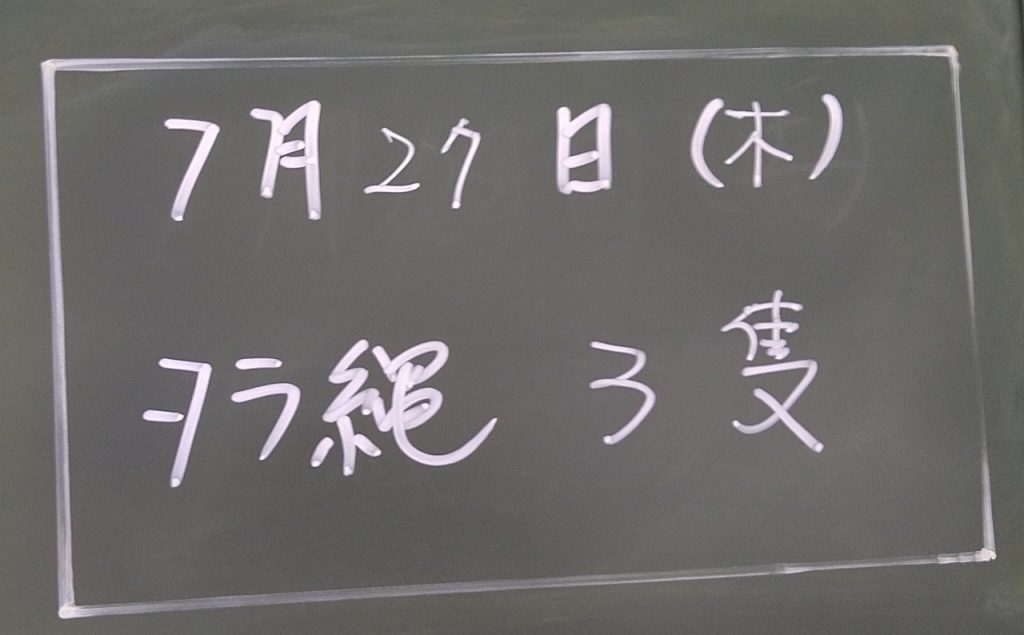 7月27日(木)
タラ縄 3隻